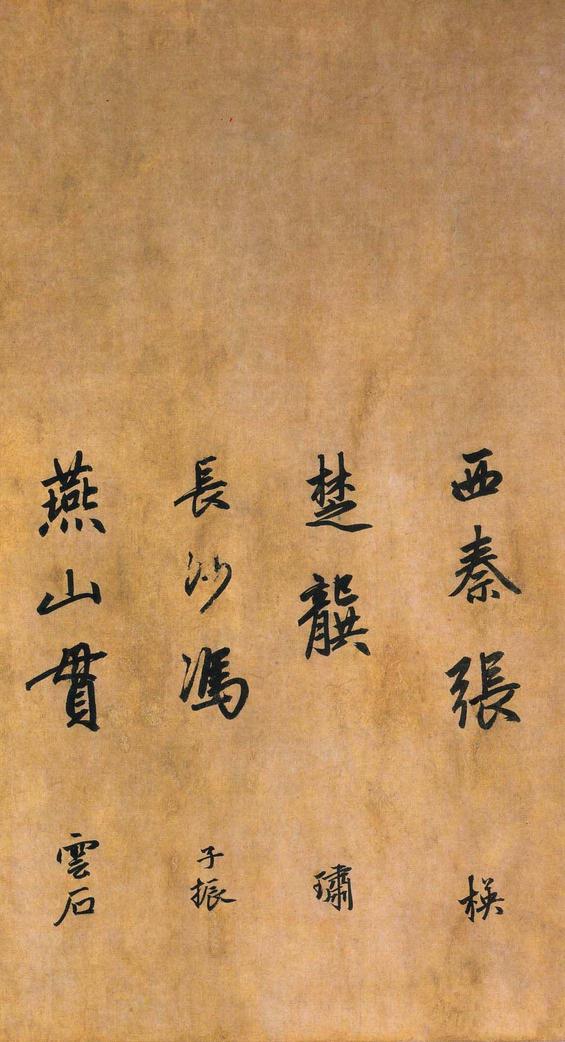 西秦張 楧
楚龔 璛
長沙馮 子振
燕山貫 雲石